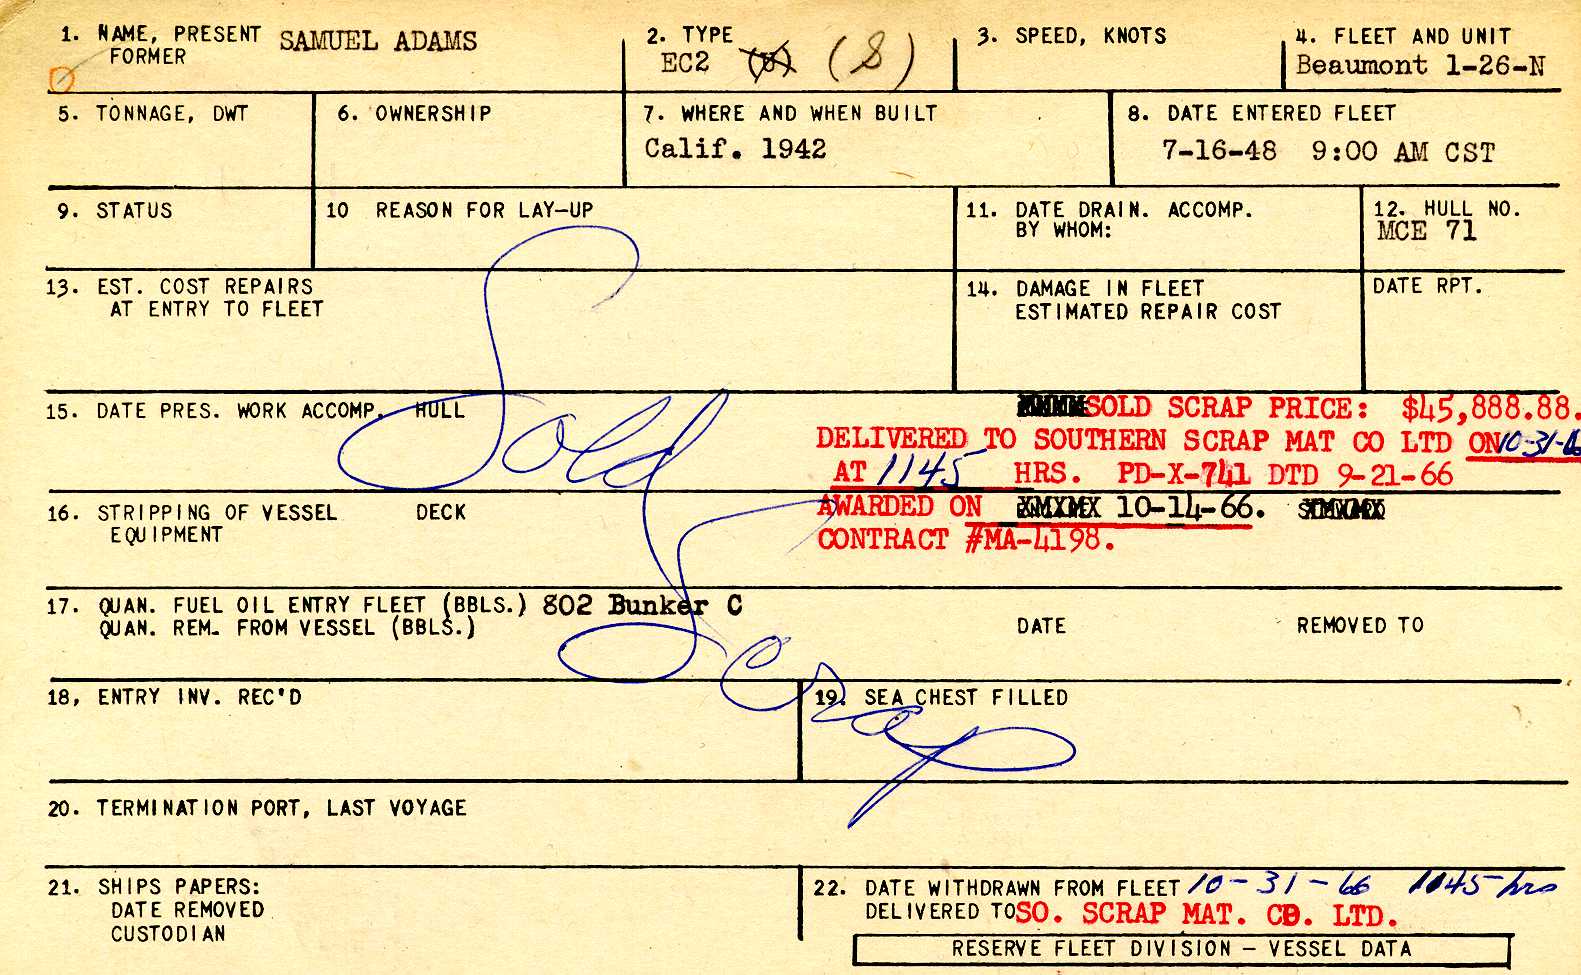 1. NAME, PRESENT SAMUEL ADAMS
FORMER
2. TYPE
EC2 (S)
3. SPEED, KNOTS
4. FLEET AND UNIT
Beaumont 1-26-N
5. TONNAGE, DWT
6. OWNERSHIP
7. WHERE AND WHEN BUILT
Calif. 1942
8. DATE ENTERED FLEET
7-16-48 9:00 AM CST
9. STATUS
10 REASON FOR LAY-UP
11. DATE DRAIN. ACCOMP.
BY WHOM:
12. HULL NO.
MCE 71
13. EST. COST REPAIRS
AT ENTRY TO FLEET
14. DAMAGE IN FLEET
ESTIMATED REPAIR COST
DATE RPT.
15. DATE PRES. WORK ACCOMP. HULL
SOLD SCRAP PRICE: $45,888.88.
DELIVERED TO SOUTHERN SCRAP MAT CO LTD ON 10-31-66
AT 1145 HRS. PD-X-741 DTD 9-21-66
Sold
16. STRIPPING OF VESSEL DECK
EQUIPMENT
AWARDED ON 10-14-66.
CONTRACT #MA-4198.
17. QUAN. FUEL OIL ENTRY FLEET (BBLS.) 802 Bunker C
QUAN. REM. FROM VESSEL (BBLS.)
DATE
REMOVED TO
Scrap
18, ENTRY INV. REC'D
19. SEA CHEST FILLED
20. TERMINATION PORT, LAST VOYAGE
21. SHIPS PAPERS:
DATE REMOVED
CUSTODIAN
22. DATE WITHDRAWN FROM FLEET 10-31-66 1145 hrs
DELIVERED TO SO. SCRAP MAT. CO. LTD.
RESERVE FLEET DIVISION - VESSEL DATA